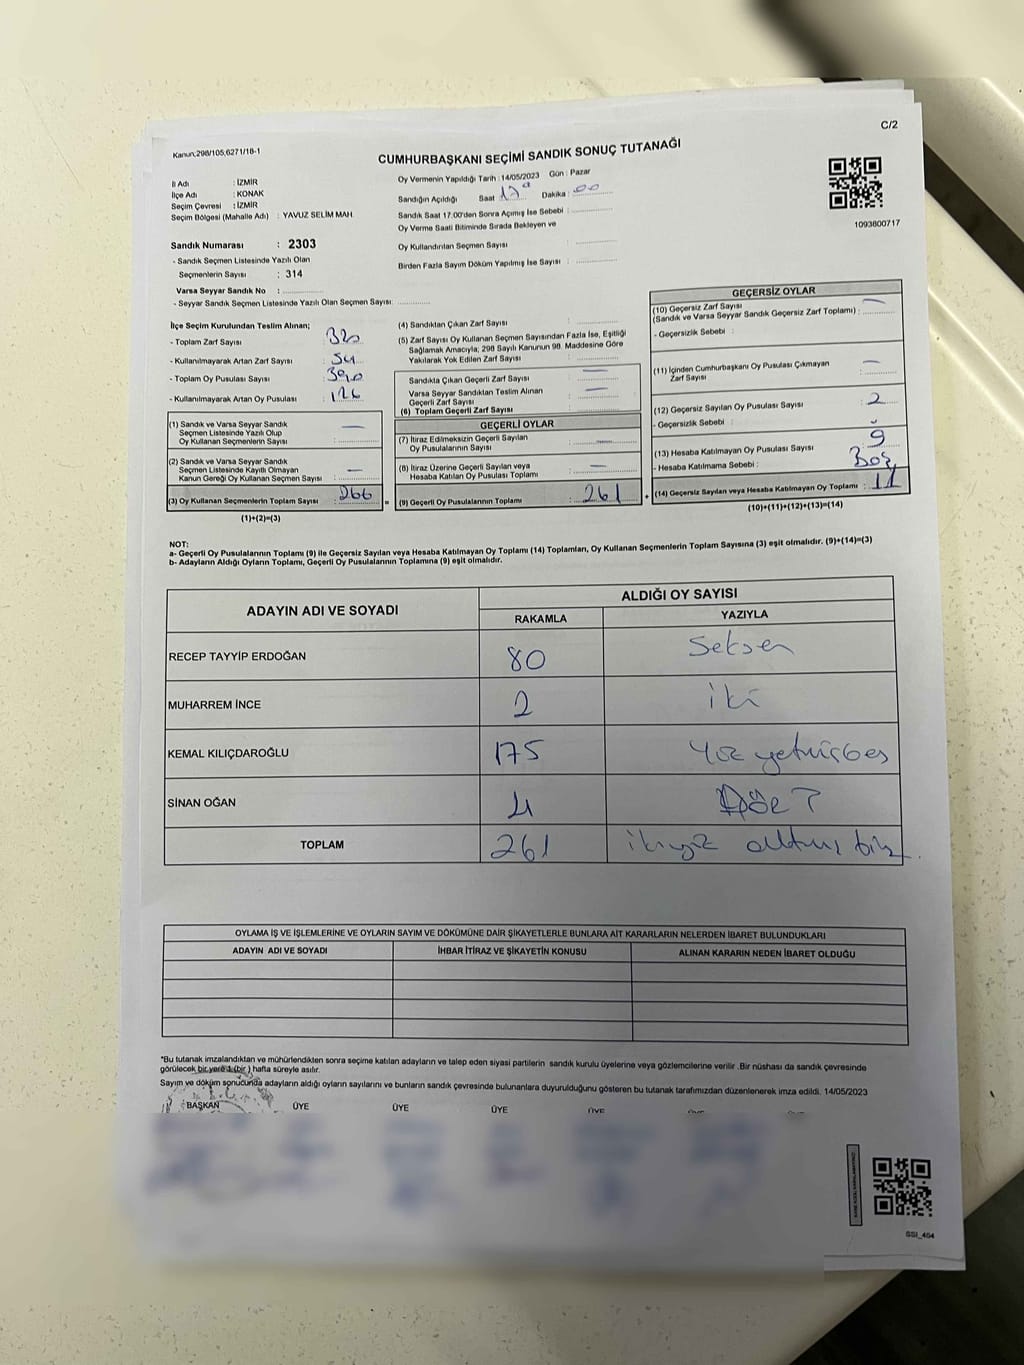 C/2
Kanun,298/105,6271/18-1
CUMHURBAŞKANI SEÇİMİ SANDIK SONUÇ TUTANAĞI
1093800717
İl Adı : İZMİR
İlçe Adı : KONAK
Seçim Çevresi : İZMİR
Seçim Bölgesi (Mahalle Adı) : YAVUZ SELİM MAH.
Sandık Numarası : 2303
- Sandık Seçmen Listesinde Yazılı Olan
Seçmenlerin Sayısı : 314
Varsa Seyyar Sandık No :
- Seyyar Sandık Seçmen Listesinde Yazılı Olan Seçmen Sayısı:
Oy Vermenin Yapıldığı Tarih : 14/05/2023 Gün : Pazar
Sandığın Açıldığı Saat 17 Dakika : 00
Sandık Saat 17.00'den Sonra Açımış İse Sebebi :
Oy Verme Saati Bitiminde Sırada Bekleyen ve
Oy Kullandırılan Seçmen Sayısı :
Birden Fazla Sayım Döküm Yapılmış İse Sayısı :
İlçe Seçim Kurulundan Teslim Alınan;
- Toplam Zarf Sayısı : 320
- Kullanılmayarak Artan Zarf Sayısı : 54
- Toplam Oy Pusulası Sayısı : 390
- Kullanılmayarak Artan Oy Pusulası : 126
(1) Sandık ve Varsa Seyyar Sandık
Seçmen Listesinde Yazılı Olup
Oy Kullanan Seçmenlerin Sayısı : —
(2) Sandık ve Varsa Seyyar Sandık
Seçmen Listesinde Kayıtlı Olmayan
Kanun Gereği Oy Kullanan Seçmen Sayısı : —
(3) Oy Kullanan Seçmenlerin Toplam Sayısı : 266
(1)+(2)=(3)
=
(4) Sandıktan Çıkan Zarf Sayısı :
(5) Zarf Sayısı Oy Kullanan Seçmen Sayısından Fazla İse, Eşitliği
Sağlamak Amacıyla; 298 Sayılı Kanunun 98. Maddesine Göre
Yakılarak Yok Edilen Zarf Sayısı :
Sandıkta Çıkan Geçerli Zarf Sayısı : —
Varsa Seyyar Sandıktan Teslim Alınan
Geçerli Zarf Sayısı : —
(6) Toplam Geçerli Zarf Sayısı :
GEÇERLİ OYLAR
(7) İtiraz Edilmeksizin Geçerli Sayılan
Oy Pusulalarının Sayısı : —
(8) İtiraz Üzerine Geçerli Sayılan veya
Hesaba Katılan Oy Pusulası Toplamı : —
(9) Geçerli Oy Pusulalarının Toplamı : 261
+
GEÇERSİZ OYLAR
(10) Geçersiz Zarf Sayısı
(Sandık ve Varsa Seyyar Sandık Geçersiz Zarf Toplamı) : —
- Geçersizlik Sebebi :
(11) İçinden Cumhurbaşkanı Oy Pusulası Çıkmayan
Zarf Sayısı : —
(12) Geçersiz Sayılan Oy Pusulası Sayısı : 2
- Geçersizlik Sebebi :
(13) Hesaba Katılmayan Oy Pusulası Sayısı : 9
- Hesaba Katılmama Sebebi : Boş
(14) Geçersiz Sayılan veya Hesaba Katılmayan Oy Toplamı : 11
(10)+(11)+(12)+(13)=(14)
NOT:
a- Geçerli Oy Pusulalarının Toplamı (9) ile Geçersiz Sayılan veya Hesaba Katılmayan Oy Toplamı (14) Toplamları, Oy Kullanan Seçmenlerin Toplam Sayısına (3) eşit olmalıdır. (9)+(14)=(3)
b- Adayların Aldığı Oyların Toplamı, Geçerli Oy Pusulalarının Toplamına (9) eşit olmalıdır.
ADAYIN ADI VE SOYADI
ALDIĞI OY SAYISI
RAKAMLA YAZIYLA
RECEP TAYYİP ERDOĞAN 80 Seksen
MUHARREM İNCE 2 iki
KEMAL KILIÇDAROĞLU 175 Yüz yetmişbeş
SİNAN OĞAN 4
TOPLAM 261 ikiyüz altmış bir
OYLAMA İŞ VE İŞLEMLERİNE VE OYLARIN SAYIM VE DÖKÜMÜNE DAİR ŞİKAYETLERLE BUNLARA AİT KARARLARIN NELERDEN İBARET BULUNDUKLARI
ADAYIN ADI VE SOYADI İHBAR İTİRAZ VE ŞİKAYETİN KONUSU ALINAN KARARIN NEDEN İBARET OLDUĞU
*Bu tutanak imzalandıktan ve mühürlendikten sonra seçime katılan adayların ve talep eden siyasi partilerin sandık kurulu üyelerine veya gözlemcilerine verilir .Bir nüshası da sandık çevresinde
görülecek bir yere 1 (bir) hafta süreyle asılır.
Sayım ve döküm sonucunda adayların aldığı oyların sayılarını ve bunların sandık çevresinde bulunanlara duyurulduğunu gösteren bu tutanak tarafımızdan düzenlenerek imza edildi. 14/05/2023
BAŞKAN ÜYE ÜYE ÜYE ÜYE
SSI_464